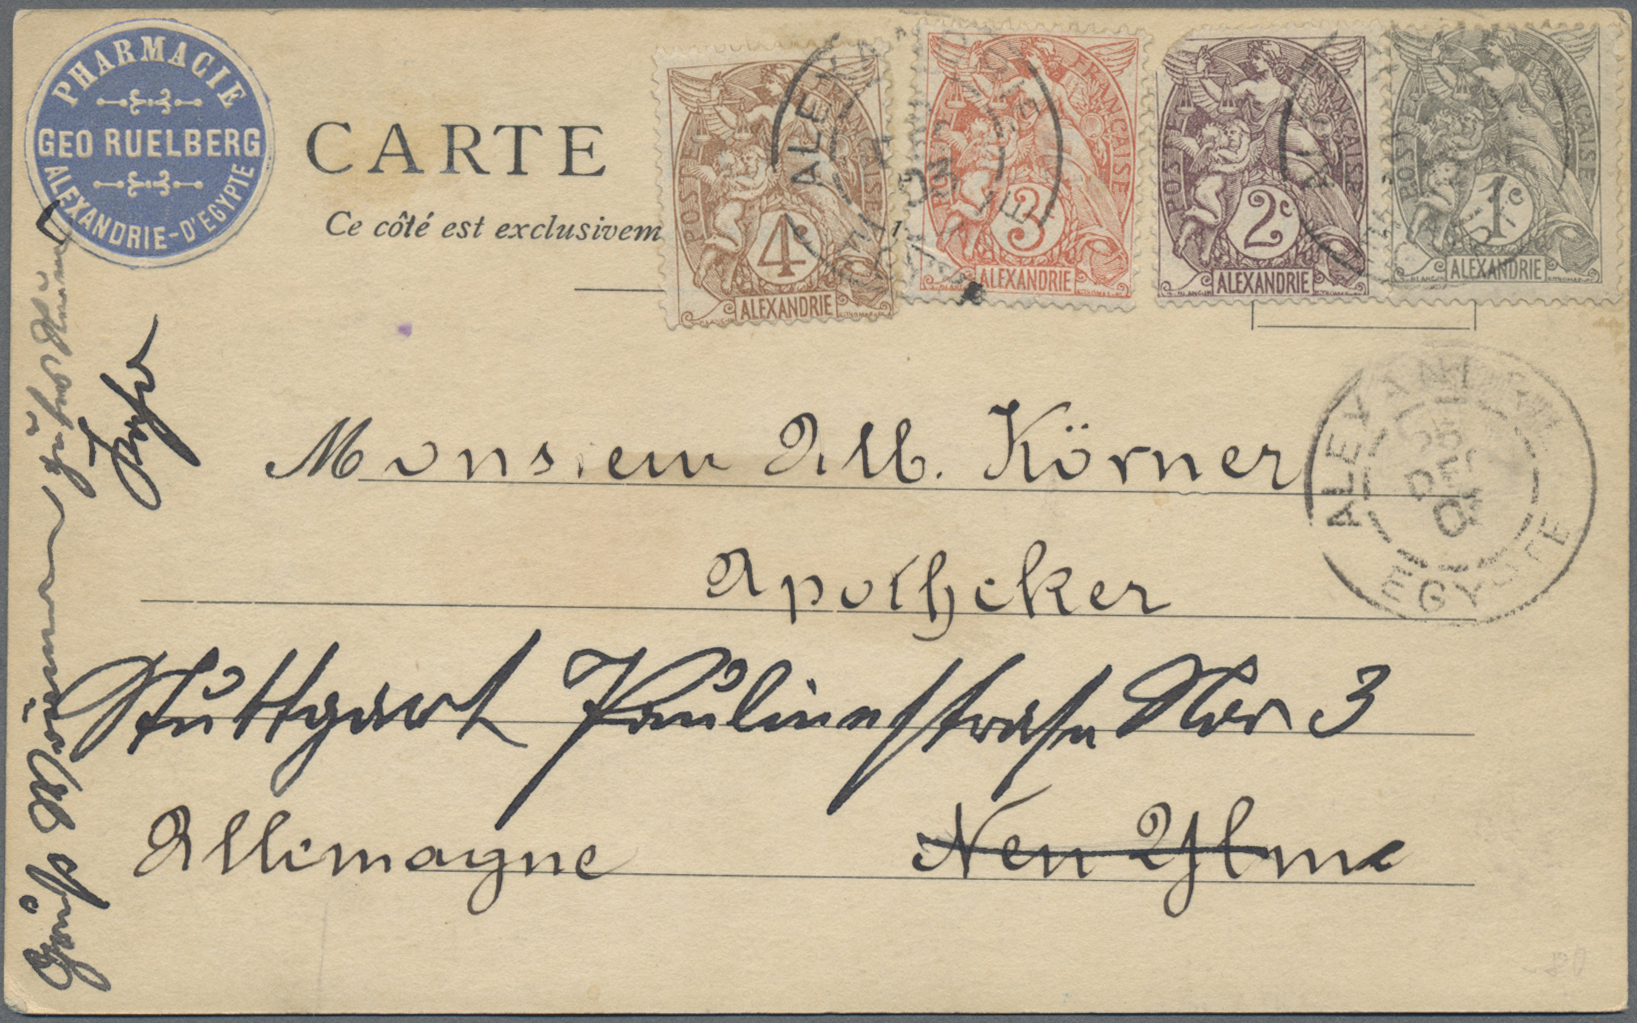 PHARMACIE
GEO RUELBERG
ALEXANDRIE-D'EGYPTE
CARTE
Ce côté est exclusivem
POSTE FRANÇAISE
4c
ALEXANDRIE
POSTE FRANÇAISE
3c
ALEXANDRIE
POSTE FRANÇAISE
2c
ALEXANDRIE
POSTE FRANÇAISE
1c
ALEXANDRIE
ALEXANDRIE
DEC
EGYPTE
Monsieur Alb. Körner
Apotheker
Stuttgart Paulinenstrasse Nro 3
Allemagne Neu Ulm